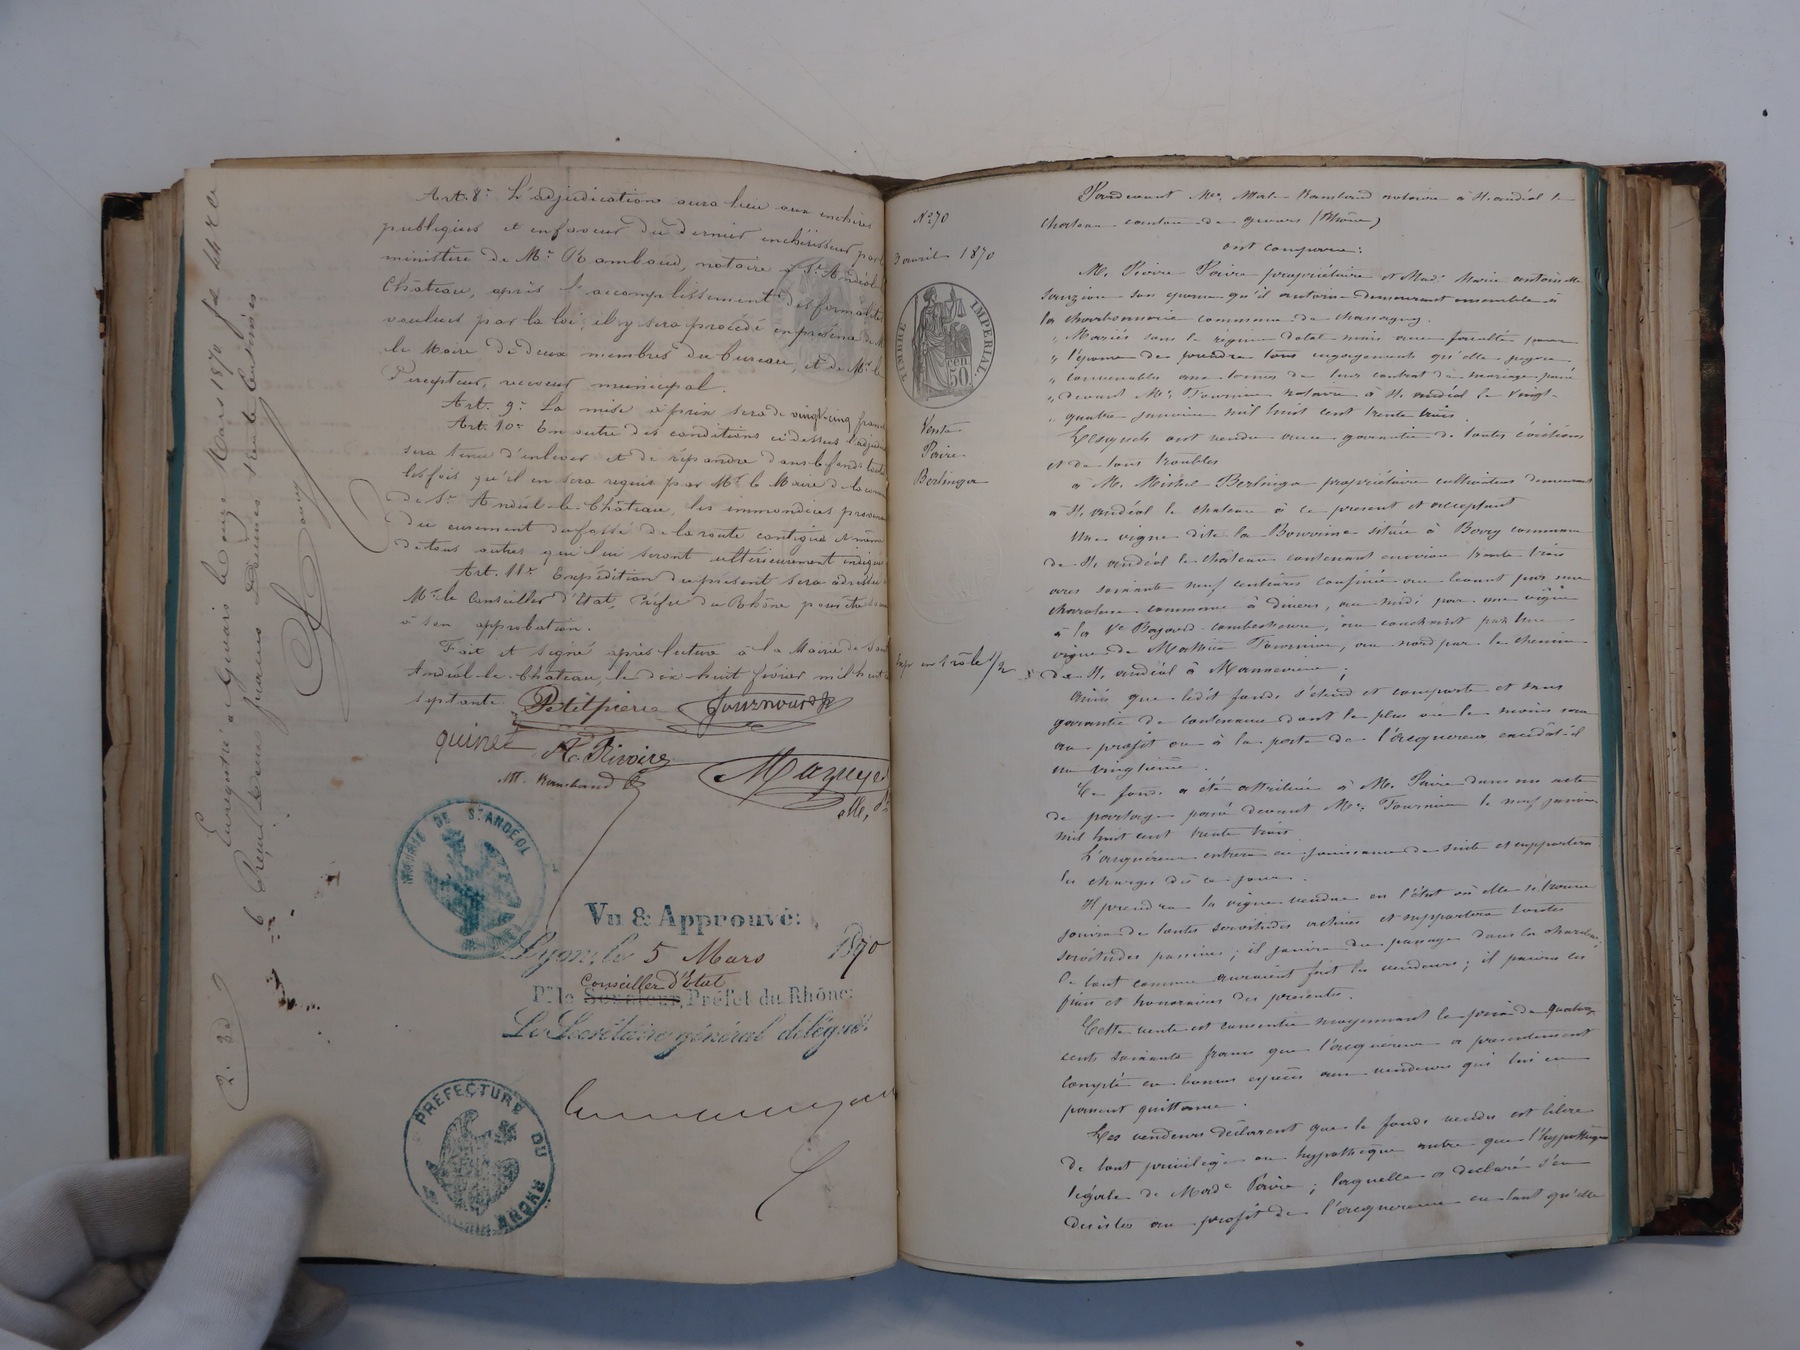 Art. 8e L'adjudication aura lieu aux enchères
publiques et en faveur du dernier enchérisseur par le
ministère de Mr Rambaud, notaire à St Andéol-le
Château, après l'accomplissement des formalités
voulues par la loi; il y sera procédé en présence de M
le Maire de deux membres du bureau, et de Mr le
Percepteur, receveur municipal.
Art. 9e La mise à prix sera de vingt-cinq francs
Art. 10e En outre des conditions ci-dessus l'adjudi
sera tenu d'enlever et de répandre dans le fonds toutes
les fois qu'il en sera requis par Mr le Maire de la comm
de St Andéol-le-Château, les immondices proven
du curement du fossé de la route contiguë et même
de tous autres qui lui seront ultérieurement indiqués
Art. 11e Expédition du présent sera adressée à
Mr le Conseiller d'Etat, Préfet du Rhône pour être
à son approbation.
Fait et signé après lecture à la Mairie de Saint
Andéol-le-Château, le dix huit février mil huit c
septante.
Petitpierre Journoud
quinet A. Rivoire Mazuyer
M. Rambaud
MAIRIE DE ST ANDÉOL
Vu & Approuvé:
Lyon, le 5 Mars 1870
Conseiller d'Etat
Pr le Sénateur, Préfet du Rhône:
Le Secrétaire général délégué:
PREFECTURE DU RHONE
Enregistré à Givors le onze Mars 1870 fo
Reçu deux francs Décimes trente centimes
2. 30
No 70
3 avril 1870
TIMBRE IMPERIAL
50 cen
Vente
Poire
Berlinga
Exp en 1 rôle 1/2
Pardevant Me Marte Rambaud notaire à St andéol le
chateau canton de givors (Rhône)
ont comparu:
M. Pierre Poire propriétaire et Made Marie antoinette
son épouse qu'il autorise demeurant ensemble à
la charbonnerie commune de chassagny.
" Mariés sous le régime dotal mais avec faculté pour
" l'épouse de prendre tous engagements qu'elle jugera
" convenables aux termes de leur contrat de mariage passé
" devant Me Fournier notaire à St andéol le vingt-
" quatre janvier mil huit cent trente trois
Lesquels ont vendu avec garantie de toutes évictions
et de tous troubles
à M. Michel Berlinga propriétaire cultivateur demeurant
à St andéol le chateau à ce present et acceptant
Une vigne dite la située à Bory commune
de St andéol le chateau contenant environ trente trois
ares soixante neuf centiares confinée au levant par une
charriere commune à divers, au midi par une vigne
à la Ve Bajard au couchant par une
vigne de Mathieu Fournier, au nord par le chemin
de St andéol à
Ainsi que ledit fonds s'étend et comporte et sans
garantie de contenance dont le plus ou le moins sera
au profit ou à la perte de l'acquéreur excédât-il
un vingtième.
Ce fonds a été attribué à M. Poire dans un acte
de partage passé devant Me Fournier le neuf janvier
mil huit cent trente trois
L'acquéreur entrera en jouissance de suite et supportera
les charges dès ce jour.
Il prendra la vigne vendue en l'état où elle se trouve
jouira de toutes servitudes actives et supportera toutes
servitudes passives; il jouira du passage dans la charriere,
le tout comme auraient fait les vendeurs; il paiera les
frais et honoraires des présentes.
Cette vente est consentie moyennant le prix de quatorze
cents soixante francs que l'acquéreur a présentement
compté en bonnes espèces aux vendeurs qui lui en
passent quittance.
Les vendeurs déclarent que le fonds vendu est libre
de tout privilége ou hypothèque autre que l'hypothèque
légale de Made Poire; laquelle a déclaré s'en
désister au profit de l'acquéreur en tant qu'elle